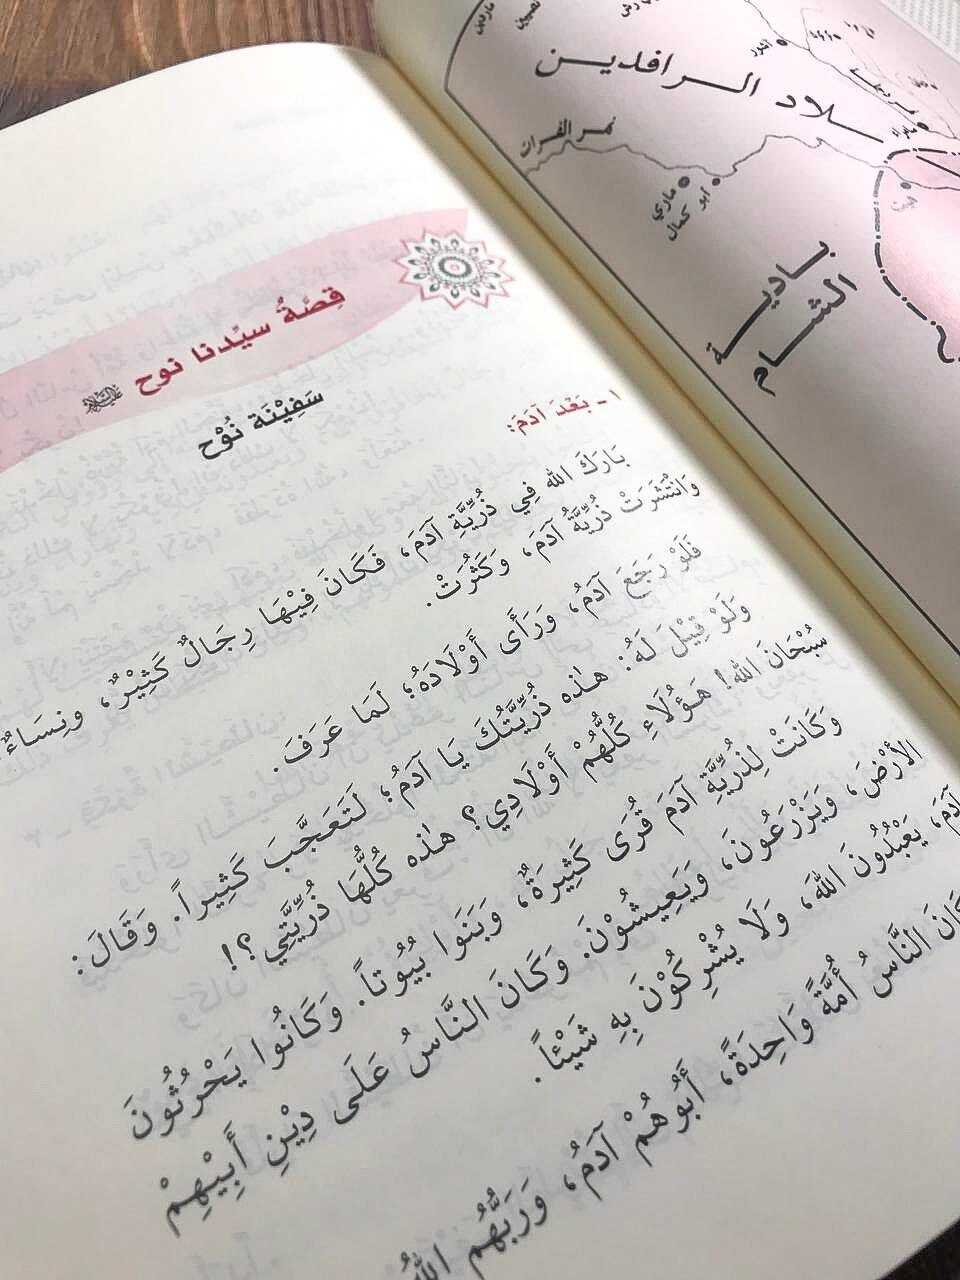 قِصَّةُ سيِّدنا نوح
سَفِيْنَة نُوْح
١ ـ بَعْدَ آدَمَ:
بَارَكَ الله فِي ذُرِّيَّةِ آدَمَ، فَكَانَ فِيْهَا رِجَالٌ كَثِيْرٌ، ونِسَاءٌ
وَانْتَشَرَتْ ذُرِّيَّةُ آدَمَ، وَكَثُرَتْ.
فَلَوْ رَجَعَ آدَمُ، وَرَأَى أَوْلَادَهُ؛ لَمَا عَرَفَ.
وَلَوْ قِيْلَ لَهُ: هٰذه ذُرِّيَّتُكَ يَا آدَمُ؛ لَتَعَجَّبَ كَثِيراً. وَقَالَ:
سُبْحَانَ الله! هَؤُلَاءِ كُلُّهُمْ أَوْلَادِي؟ هٰذه كُلُّهَا ذُرِّيَّتِي؟!
وَكَانَتْ لِذُرِّيَّةِ آدَمَ قُرَى كَثِيرَةٌ، وَبَنَوا بُيُوتاً. وَكَانُوا يَحْرُثُونَ
الأرْضَ، وَيَزْرَعُونَ، وَيَعِيشُوْنَ. وَكَانَ النَّاسُ عَلَى دِيْنِ أَبِيْهِمْ
آدَمَ، يَعْبُدُونَ اللهَ، وَلَا يُشْرِكُوْنَ بِهِ شَيْئاً.
كَانَ النَّاسُ أُمَّةً وَاحِدَةً، أَبُوهُمْ آدَمُ، وَرَبُّهُم اللهُ
بلاد الرافدين
نهر الفرات
ماري
أبو كمال
آشور
بادية
الشام